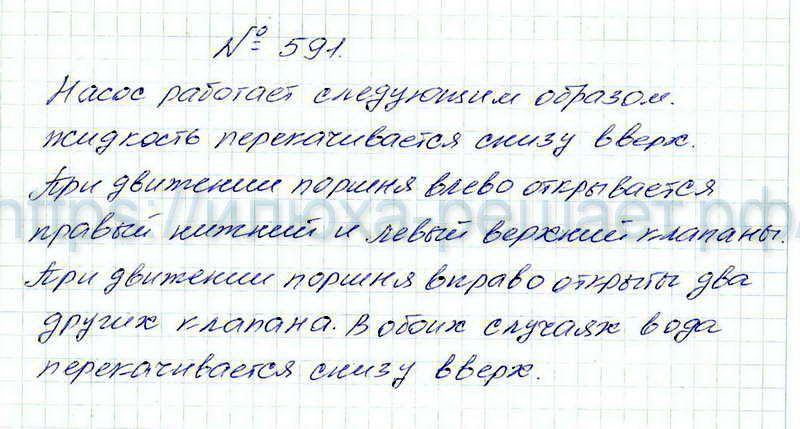 № 591.
Насос работает следующим образом.
Жидкость перекачивается снизу вверх.
При движении поршня влево открывается
правый нижний и левый верхний клапаны.
При движении поршня вправо открыты два
других клапана. В обоих случаях вода
перекачивается снизу вверх.